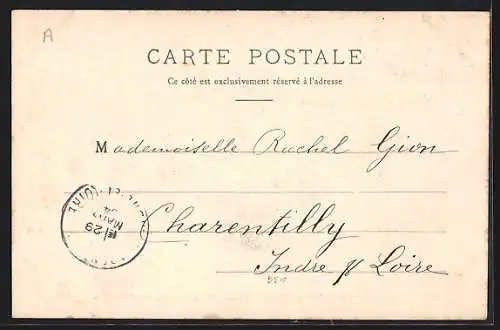 A
CARTE POSTALE
Ce côté est exclusivement réservé à l'adresse
Mademoiselle Rachel Gion
Charentilly
Indre & Loire
E 29
MARS
04
LOIRE